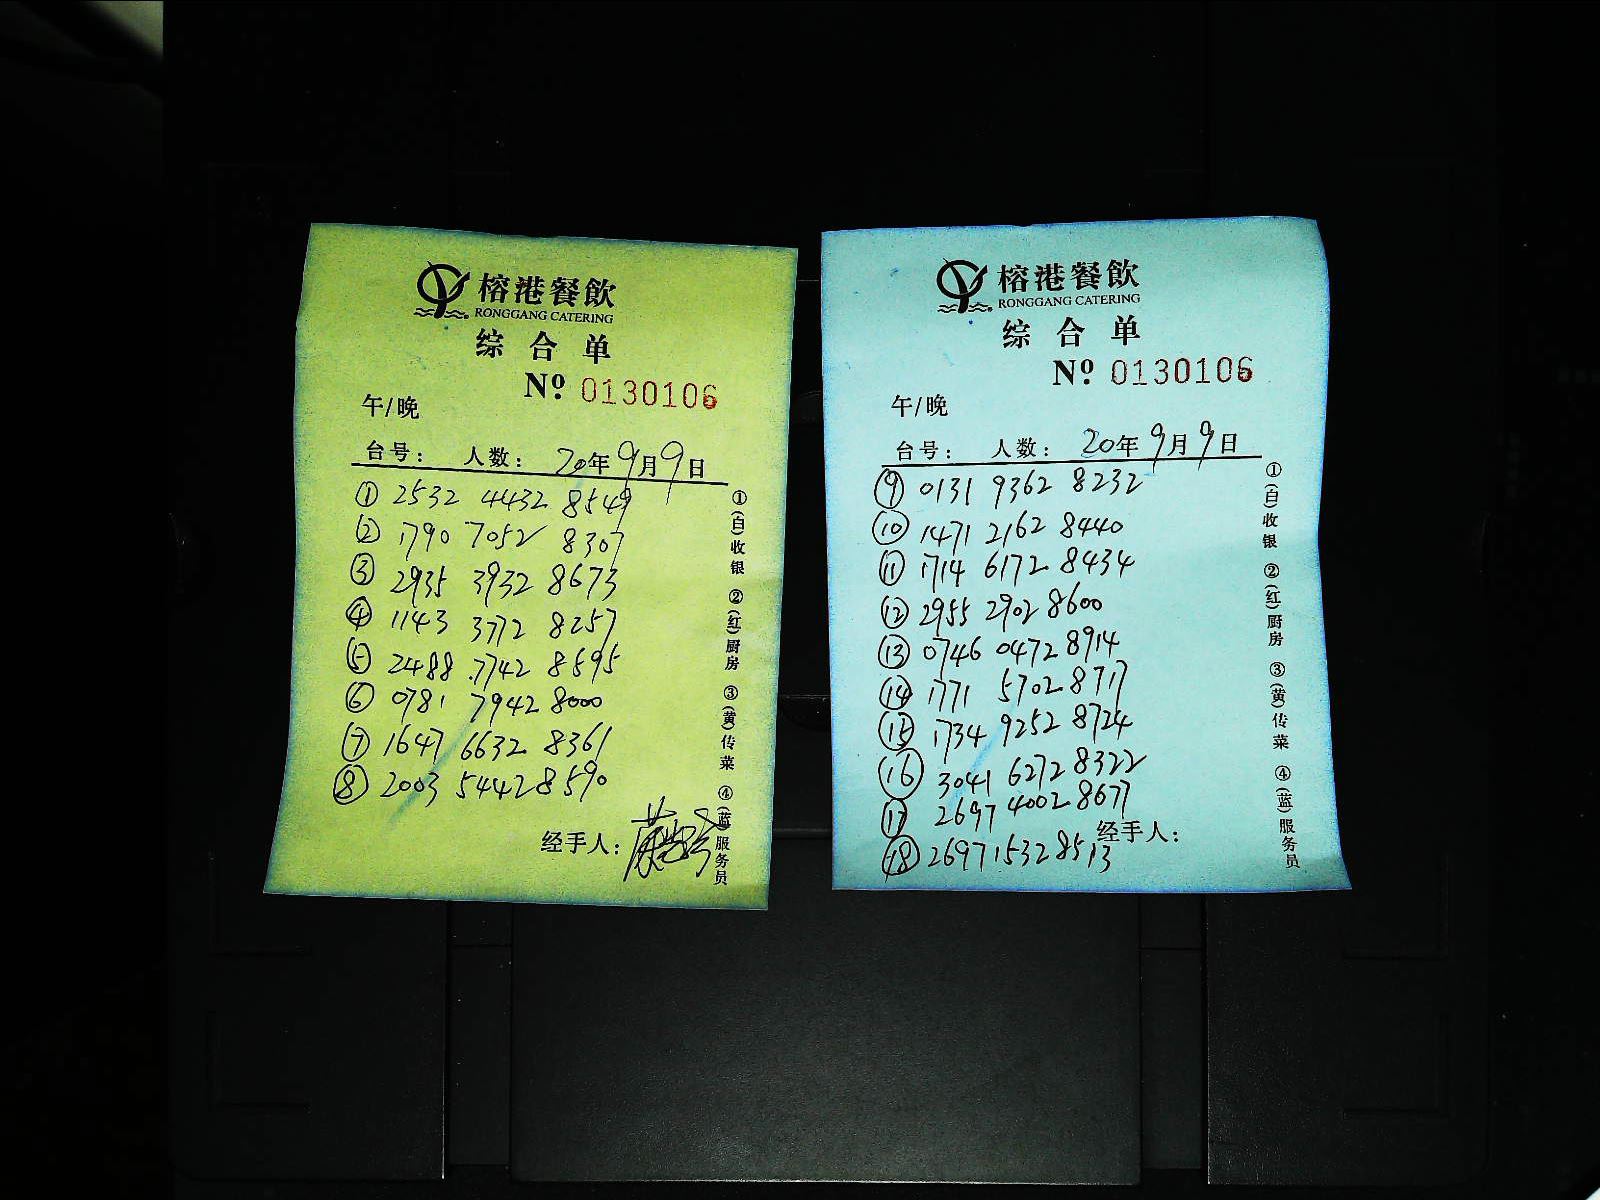 榕港餐飲
RONGGANG CATERING
综合单
Nº 0130106
午/晚
台号： 人数： 20年9月9日
① 2532 4432 8549
② 1790 7052 8307
③ 2935 3932 8673
④ 1143 3772 8257
⑤ 2488 7742 8595
⑥ 0781 7942 8000
⑦ 1647 6632 8361
⑧ 2003 5442 8590
经手人：
①(白)收银 ②(红)厨房 ③(黄)传菜 ④(蓝)服务员
榕港餐飲
RONGGANG CATERING
综合单
Nº 0130106
午/晚
台号： 人数： 20年9月9日
⑨ 0131 9362 8232
⑩ 1471 2162 8440
⑪ 1714 6172 8434
⑫ 2955 2902 8600
⑬ 0746 0472 8914
⑭ 1771 5702 8717
⑮ 1734 9252 8724
⑯ 3041 6272 8322
⑰ 2697 4002 8677
经手人：
⑱ 2697 1532 8513
①(白)收银 ②(红)厨房 ③(黄)传菜 ④(蓝)服务员